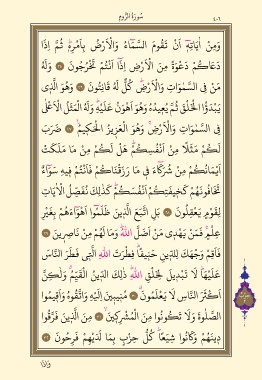 سُورَةُ الرُّومِ
٤٠٦
وَمِنْ اٰيَاتِه۪ٓ اَنْ تَقُومَ السَّمَٓاءُ وَالْاَرْضُ بِاَمْرِه۪ۜ ثُمَّ اِذَا
دَعَاكُمْ دَعْوَةً مِنَ الْاَرْضِ اِذَٓا اَنْتُمْ تَخْرُجُونَ ﴿٢٥﴾ وَلَهُ
مَنْ فِي السَّمٰوَاتِ وَالْاَرْضِۜ كُلٌّ لَهُ قَانِتُونَ ﴿٢٦﴾ وَهُوَ الَّذ۪ي
يَبْدَؤُا الْخَلْقَ ثُمَّ يُع۪يدُهُ وَهُوَ اَهْوَنُ عَلَيْهِۜ وَلَهُ الْمَثَلُ الْاَعْلٰى
فِي السَّمٰوَاتِ وَالْاَرْضِۚ وَهُوَ الْعَز۪يزُ الْحَك۪يمُ ﴿٢٧﴾ ضَرَبَ
لَكُمْ مَثَلًا مِنْ اَنْفُسِكُمْۜ هَلْ لَكُمْ مِنْ مَا مَلَكَتْ
اَيْمَانُكُمْ مِنْ شُرَكَٓاءَ ف۪ي مَا رَزَقْنَاكُمْ فَاَنْتُمْ ف۪يهِ سَوَٓاءٌ
تَخَافُونَهُمْ كَخ۪يفَتِكُمْ اَنْفُسَكُمْۜ كَذٰلِكَ نُفَصِّلُ الْاٰيَاتِ
لِقَوْمٍ يَعْقِلُونَ ﴿٢٨﴾ بَلِ اتَّبَعَ الَّذ۪ينَ ظَلَمُٓوا اَهْوَٓاءَهُمْ بِغَيْرِ
عِلْمٍۚ فَمَنْ يَهْد۪ي مَنْ اَضَلَّ اللّٰهُۜ وَمَا لَهُمْ مِنْ نَاصِر۪ينَ ﴿٢٩﴾
فَاَقِمْ وَجْهَكَ لِلدّ۪ينِ حَن۪يفًاۜ فِطْرَتَ اللّٰهِ الَّت۪ي فَطَرَ النَّاسَ
عَلَيْهَاۜ لَا تَبْد۪يلَ لِخَلْقِ اللّٰهِۜ ذٰلِكَ الدّ۪ينُ الْقَيِّمُۗ وَلٰكِنَّ
اَكْثَرَ النَّاسِ لَا يَعْلَمُونَۗ ﴿٣٠﴾ مُن۪يب۪ينَ اِلَيْهِ وَاتَّقُوهُ وَاَق۪يمُوا
الصَّلٰوةَ وَلَا تَكُونُوا مِنَ الْمُشْرِك۪ينَۙ ﴿٣١﴾ مِنَ الَّذ۪ينَ فَرَّقُوا
د۪ينَهُمْ وَكَانُوا شِيَعًاۜ كُلُّ حِزْبٍ بِمَا لَدَيْهِمْ فَرِحُونَ ﴿٣٢﴾
وَاِذَا